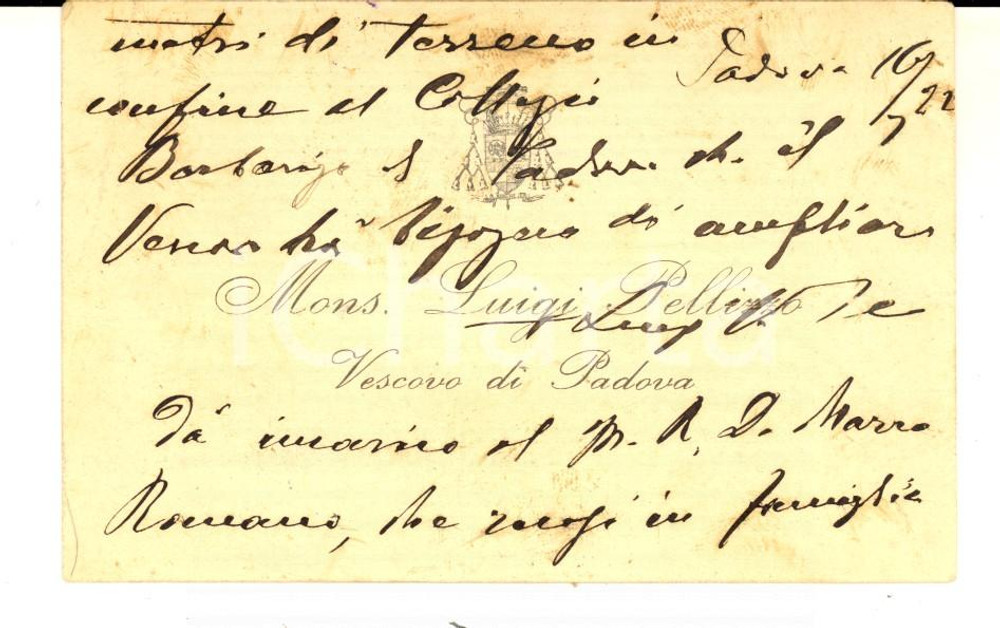 metri di terreno in
Padova 16/7 22
confine al Collegio
Barbarigo di Padova che il
Vescovo ha bisogno di ampliare
Mons. Luigi Pellizzo
Vescovo di Padova
Dà incarico al M. R. D. Marro
Romano, che in famiglia
iCharta